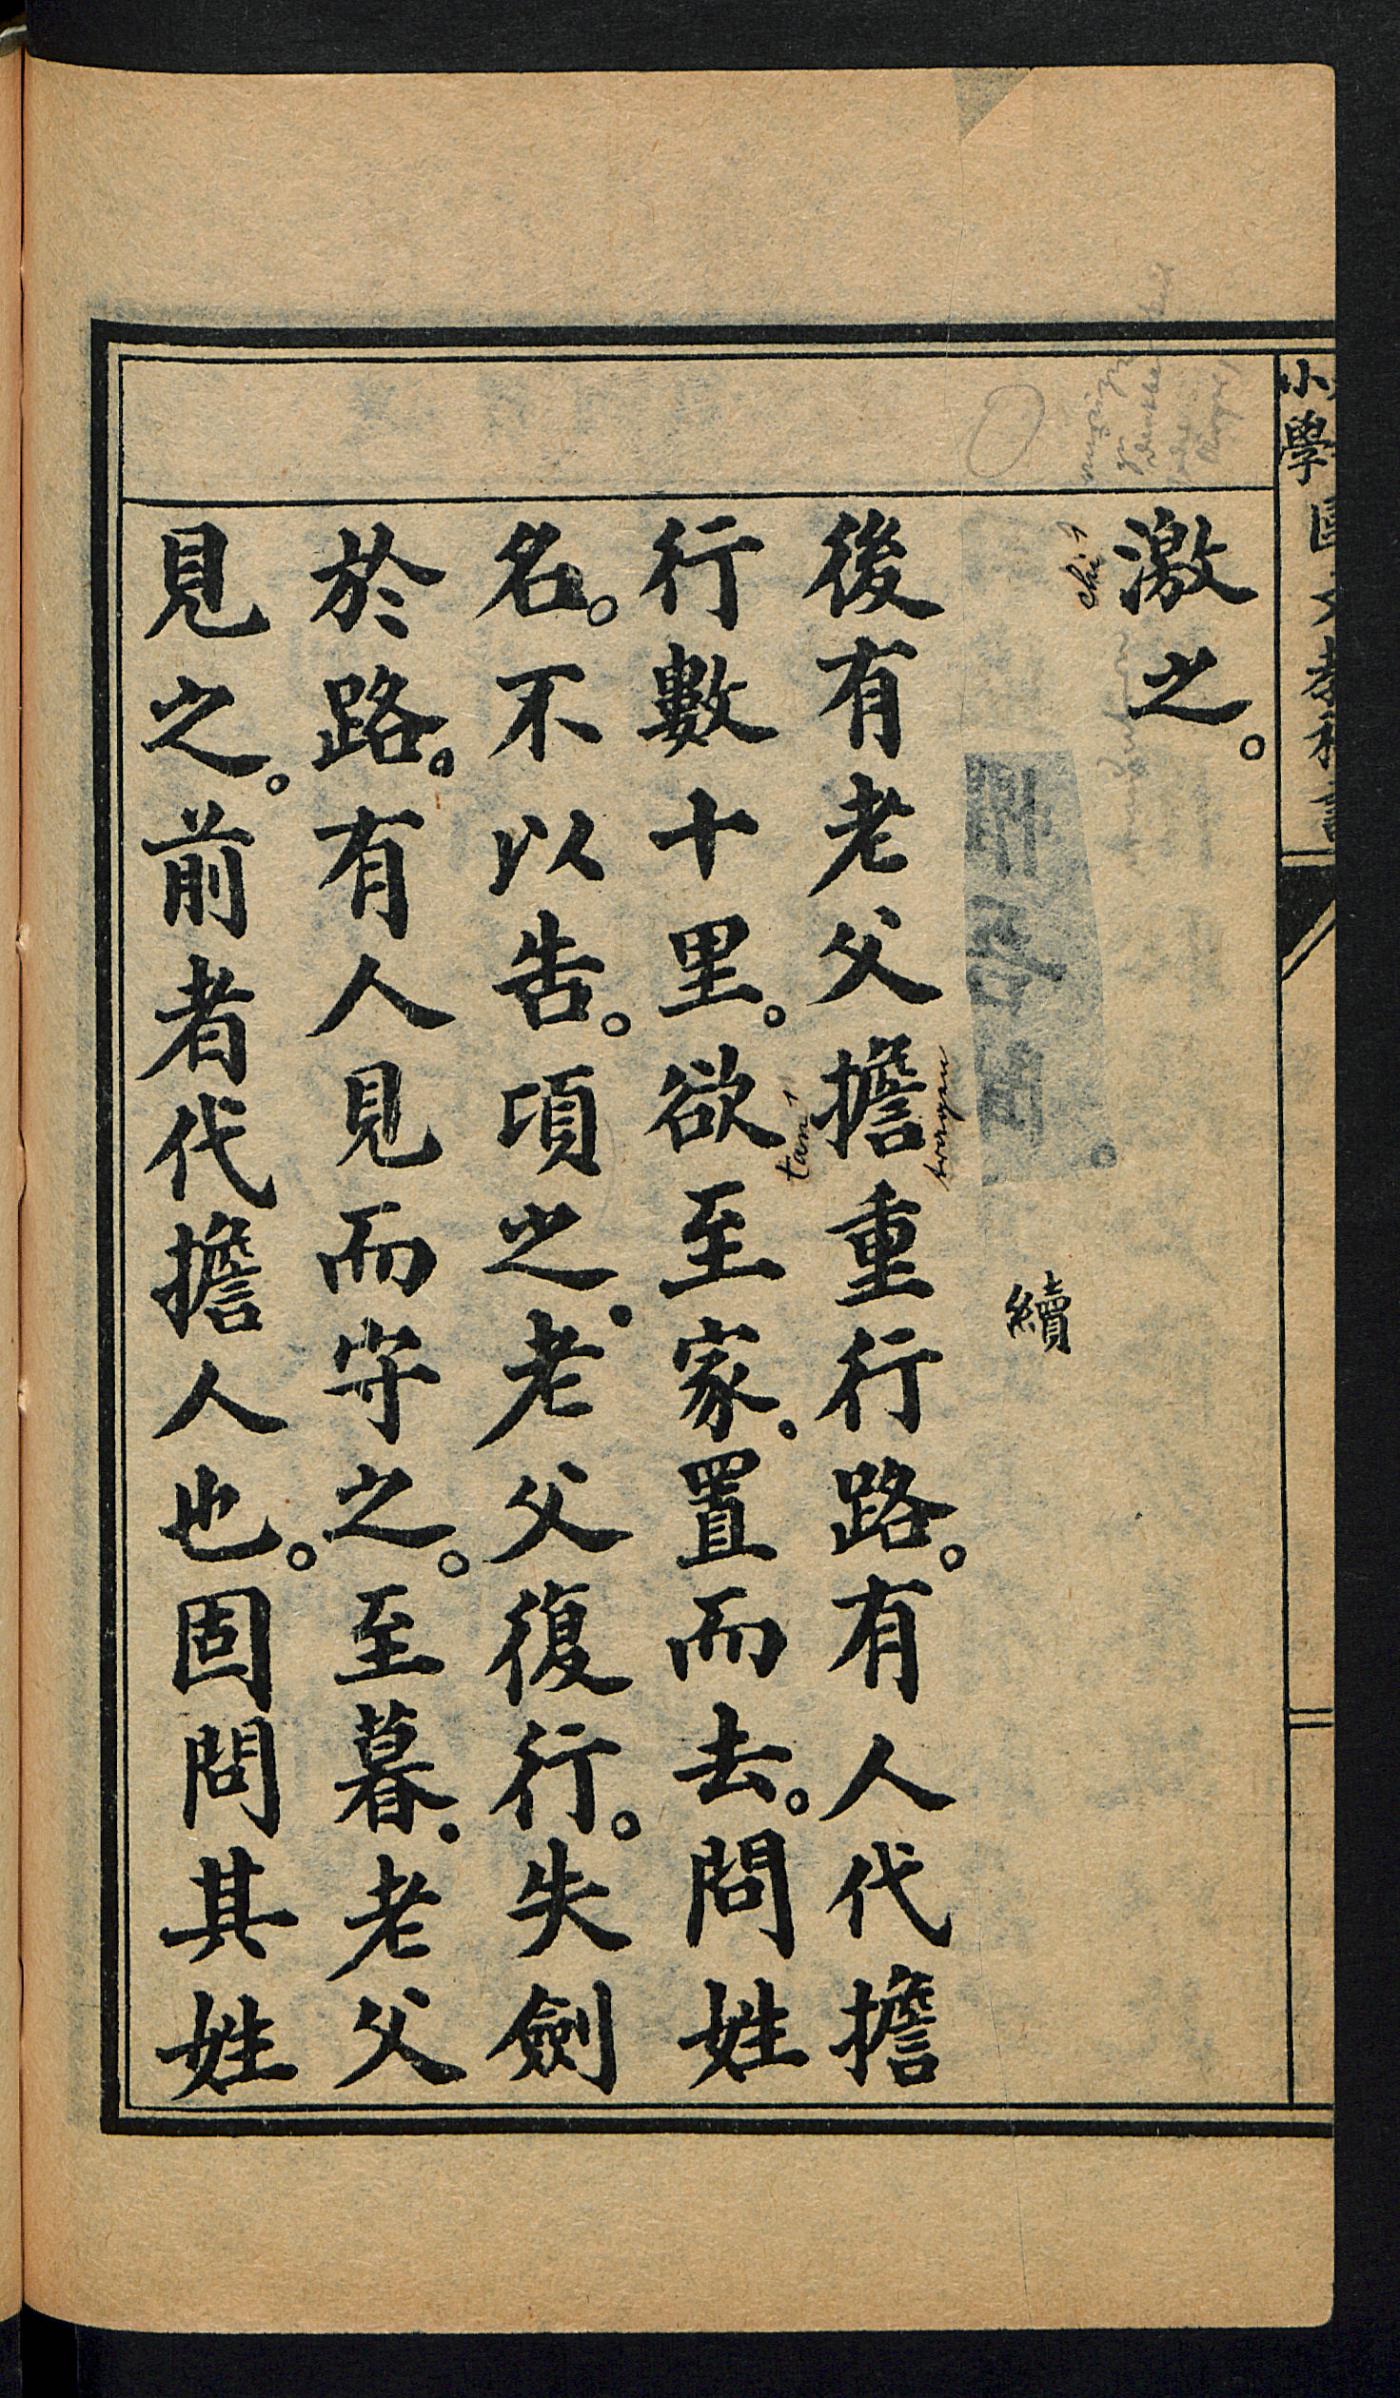 小學國文教科書
激之。
chi
續
後有老父擔重行路。有人代擔
tragen
行數十里。欲至家。置而去。問姓
tan
名。不以告。頃之.老父復行。失劍
於路。有人見而守之。至暮.老父
見之。前者代擔人也。固問其姓